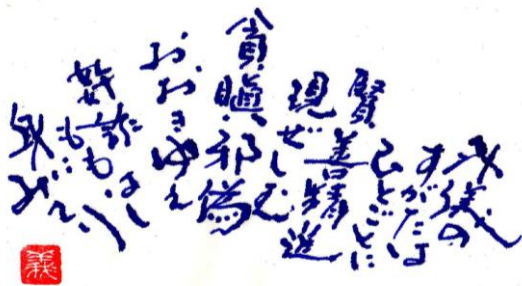 外儀の
すがたは
ひとごとに
賢善精進
現ぜしむ
貪瞋邪偽
おおきゆえ
奸詐ももはし
身にみてり
義